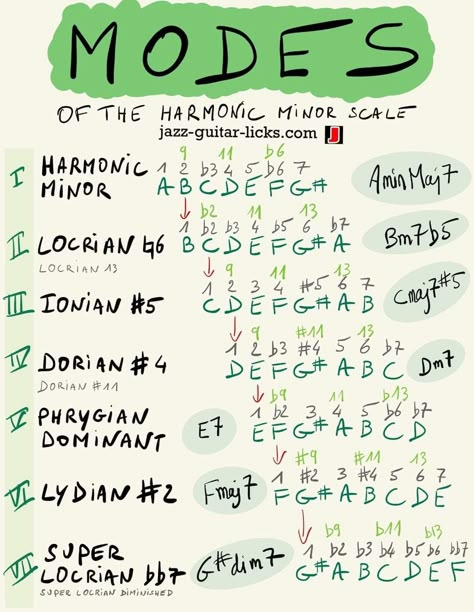 MODES
OF THE HARMONIC MINOR SCALE
jazz-guitar-licks.com J
9 11 b6
I HARMONIC 1 2 b3 4 5 b6 7
MINOR A B C D E F G# AminMaj7
b2 11 13
1 b2 b3 4 b5 6 b7
II LOCRIAN ♮6 B C D E F G# A Bm7b5
LOCRIAN 13
9 11 13
1 2 3 4 #5 6 7
III IONIAN #5 C D E F G# A B Cmaj7#5
9 #11 13
1 2 b3 #4 5 6 b7
IV DORIAN #4 D E F G# A B C Dm7
DORIAN #11
b9 11 b13
V PHRYGIAN 1 b2 3 4 5 b6 b7
DOMINANT E7 E F G# A B C D
#9 #11 13
1 #2 3 #4 5 6 7
VI LYDIAN #2 Fmaj7 F G# A B C D E
b9 b11 b13
SUPER 1 b2 b3 b4 b5 b6 bb7
VII LOCRIAN bb7 G#dim7 G# A B C D E F
SUPER LOCRIAN DIMINISHED